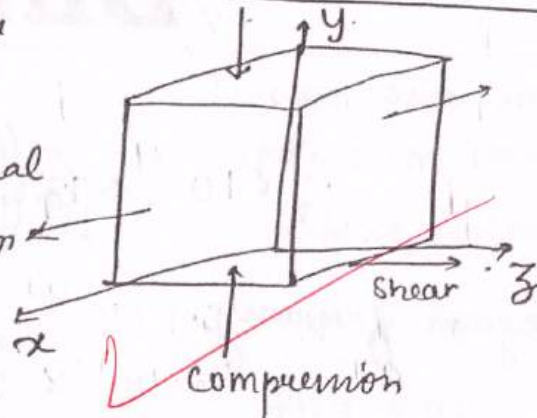 y
al
n
shear
z
x
compression